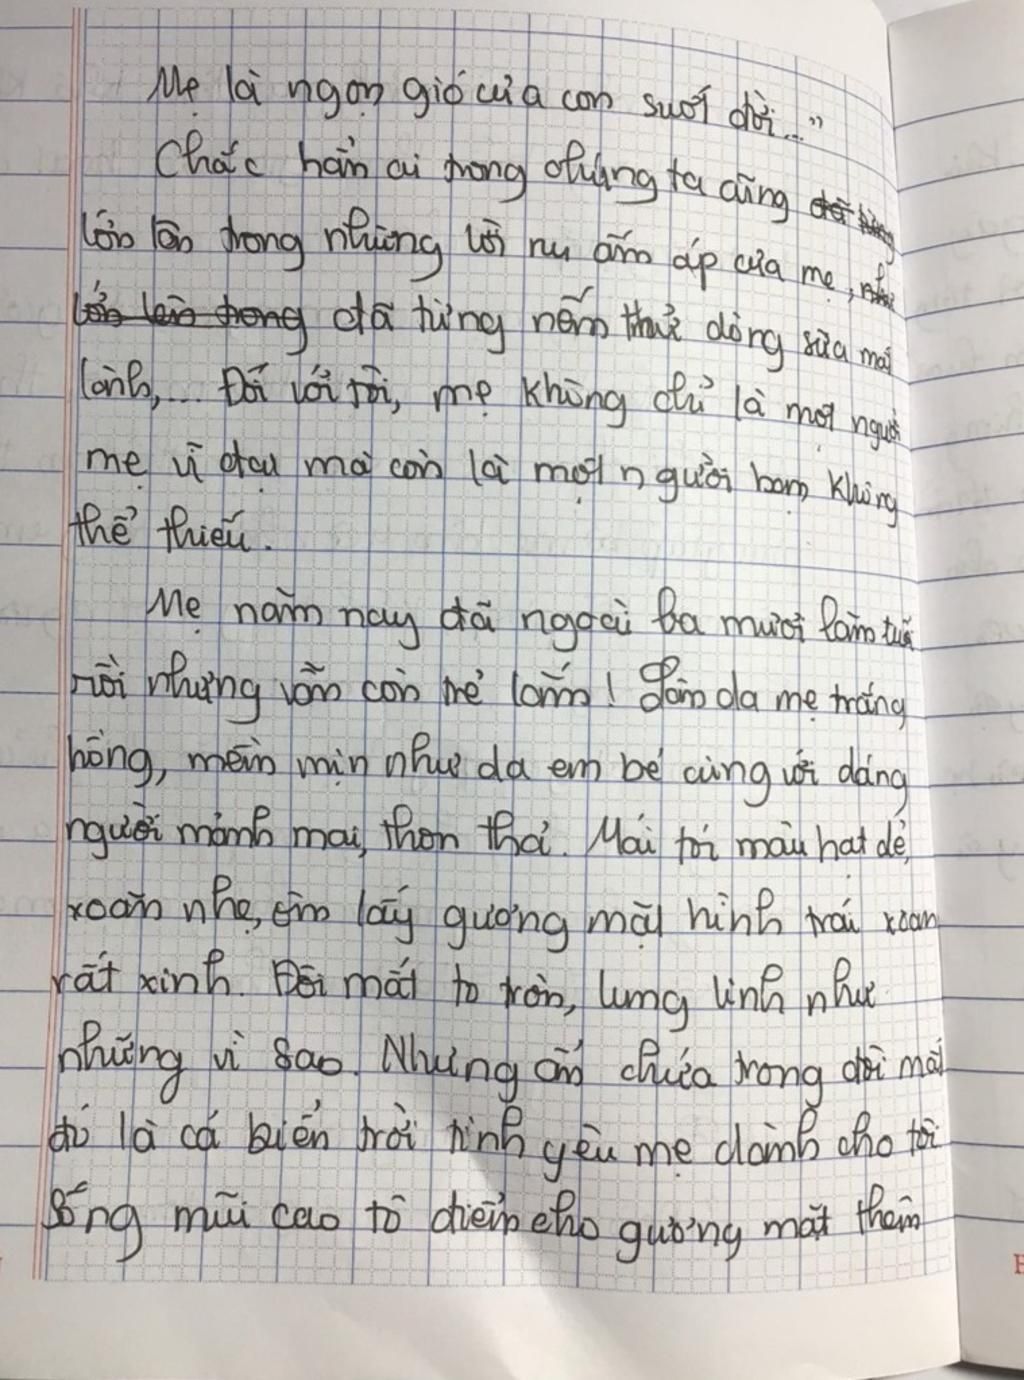 Mẹ là ngọn gió của con suốt đời..."
Chắc hẳn ai trong chúng ta cũng đã từng
lớn lên trong những lời ru ấm áp của mẹ, như
lớn lên trong đã từng nếm thử dòng sữa mát
lành,... Đối với tôi, mẹ không chỉ là một người
mẹ vĩ đại mà còn là một người bạn không
thể thiếu.
Mẹ năm nay đã ngoài ba mươi lăm tuổi
rồi nhưng vẫn còn trẻ lắm! Làn da mẹ trắng
hồng, mềm mịn như da em bé cùng với dáng
người mảnh mai, thon thả. Mái tóc màu hạt dẻ,
xoăn nhẹ, ôm lấy gương mặt hình trái xoan
rất xinh. Đôi mắt to tròn, lung linh như
những vì sao. Nhưng ẩn chứa trong đôi mắt
đó là cả biển trời tình yêu mẹ dành cho tôi
Sống mũi cao tô điểm cho gương mặt thêm